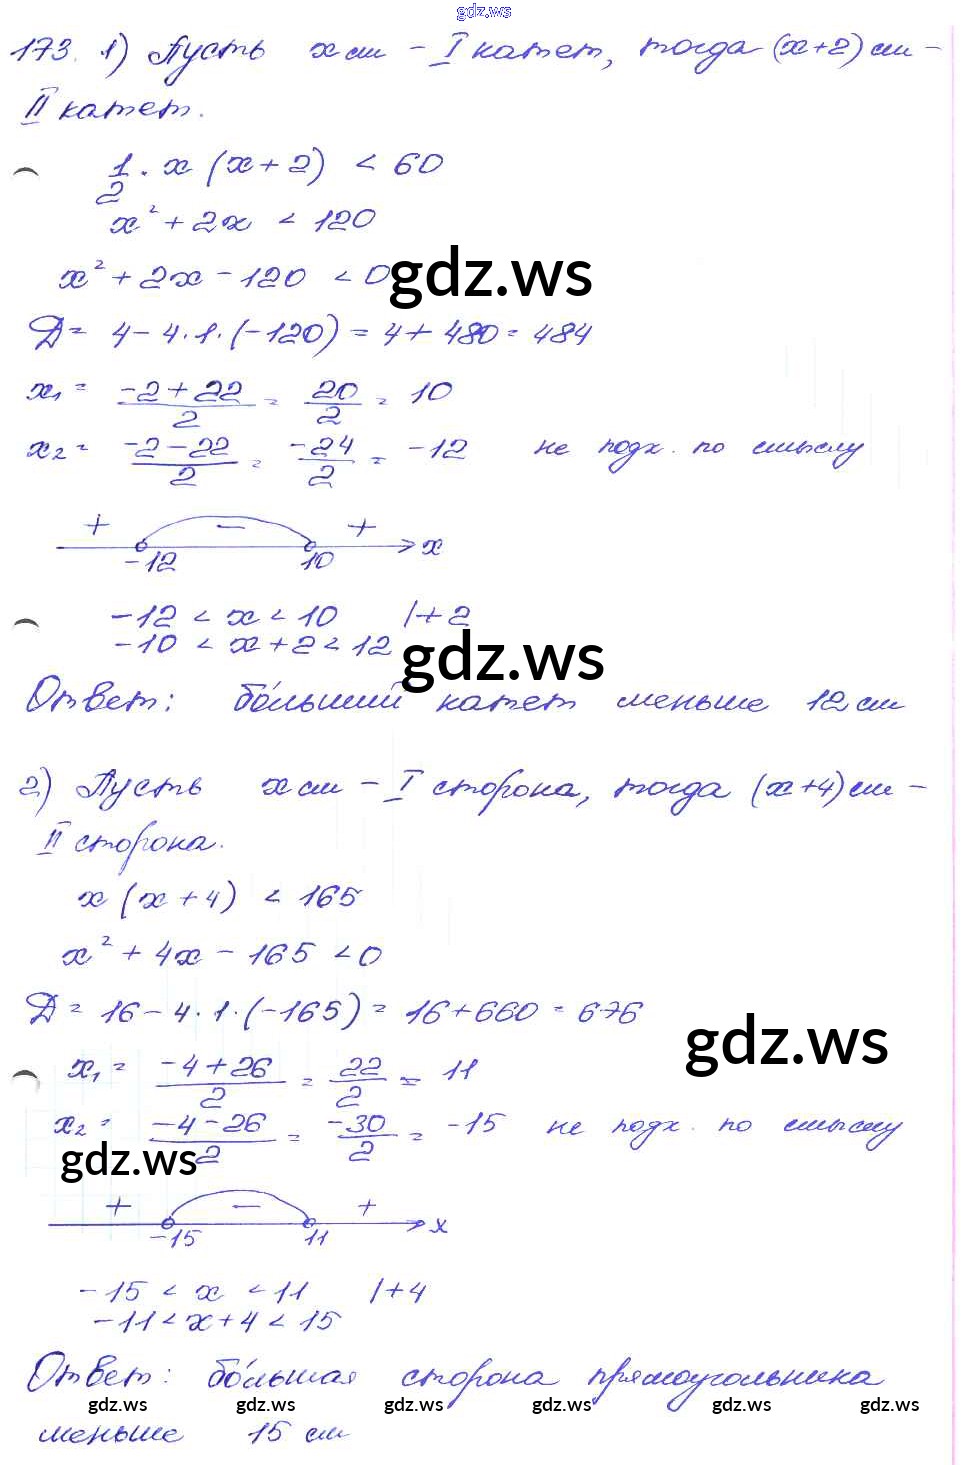 gdz.ws
173. 1) Пусть x см – I катет, тогда (x+2) см –
II катет.
1/2 · x (x+2) < 60
x² + 2x < 120
x² + 2x – 120 < 0
gdz.ws
Д = 4 – 4·1·(–120) = 4 + 480 = 484
x₁ = (–2+22)/2 = 20/2 = 10
x₂ = (–2–22)/2 = –24/2 = –12 не подх. по смыслу
+ – +
–12 10 x
–12 < x < 10 |+2
–10 < x+2 < 12
gdz.ws
Ответ: бо́льший катет меньше 12 см
2) Пусть x см – I сторона, тогда (x+4) см –
II сторона.
x (x+4) < 165
x² + 4x – 165 < 0
Д = 16 – 4·1·(–165) = 16 + 660 = 676
gdz.ws
x₁ = (–4+26)/2 = 22/2 = 11
x₂ = (–4–26)/2 = –30/2 = –15 не подх. по смыслу
gdz.ws
+ – +
–15 11 x
–15 < x < 11 |+4
–11 < x+4 < 15
Ответ: бо́льшая сторона прямоугольника
gdz.ws gdz.ws gdz.ws gdz.ws gdz.ws gdz.ws
меньше 15 см